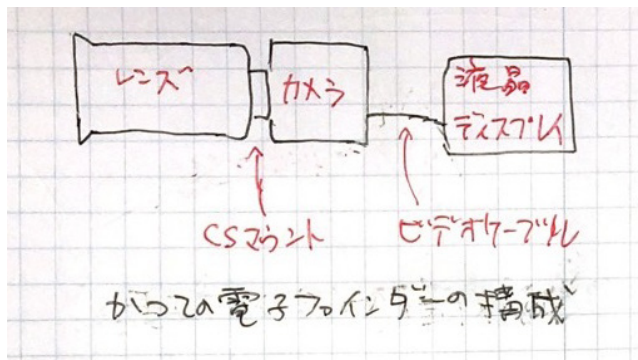 レンズ
カメラ
液晶
ディスプレイ
CSマウント
ビデオケーブル
かつての電子ファインダーの構成